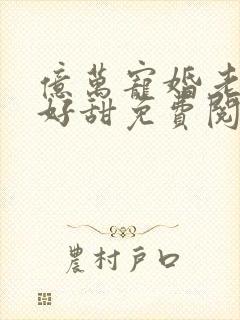 億萬寵婚老
好甜免費閱
農村戶口